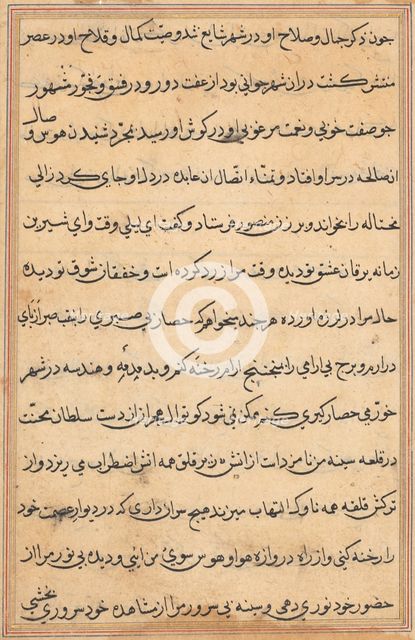 چون ذکر جمال و صلاح او در شهر شایع شد و صیت کمال و فلاح او در عصر
منتشر کشت در ان شهر جوانی بود از عفت دور و در فسق و فجور مشهور
چو صفت خوبی و نعت مرغوبی او در کوش او رسید بمجرد شنیدن هوس وصال
ان صالحه در سر او افتاد و تمناء اتصال ان عابده در دل او جای کرد زالی
محتاله را بخواند و بر زن منصور فرستاد و کفت ای لیلی وقت وای شیرین
زمانه یرقان عشق تو دیده وقت مرا زرد کرده است و خفقان شوق تو دیده
حال مرا در لرزه اورده هر چند میخواهم که حصار بی صبری را بنقب صبر از پای
درارم و برج بی ارامی را بمنجنیق ارام رخنه کنم و بدمدمه و هندسه در شهر
خورمی حصار کیری کنم ممکن نمی شود کوتوال هجر از دست سلطان محنت
در قلعه سینه من نامزد است از اتش زنبر قلق همه اتش اضطراب می ریزد و از
ترکش قلقه همه ناوک التهاب میزند هیچ سر ان داری که در دیوار عصمت خود
را رخنه کنی و از راه دروازه هوا و هوس سوی من ائی و دیده بی نور مرا از
حضور خود نوری دهی و سینه بی سرور مرا از مشاهده خود سروری بخشی